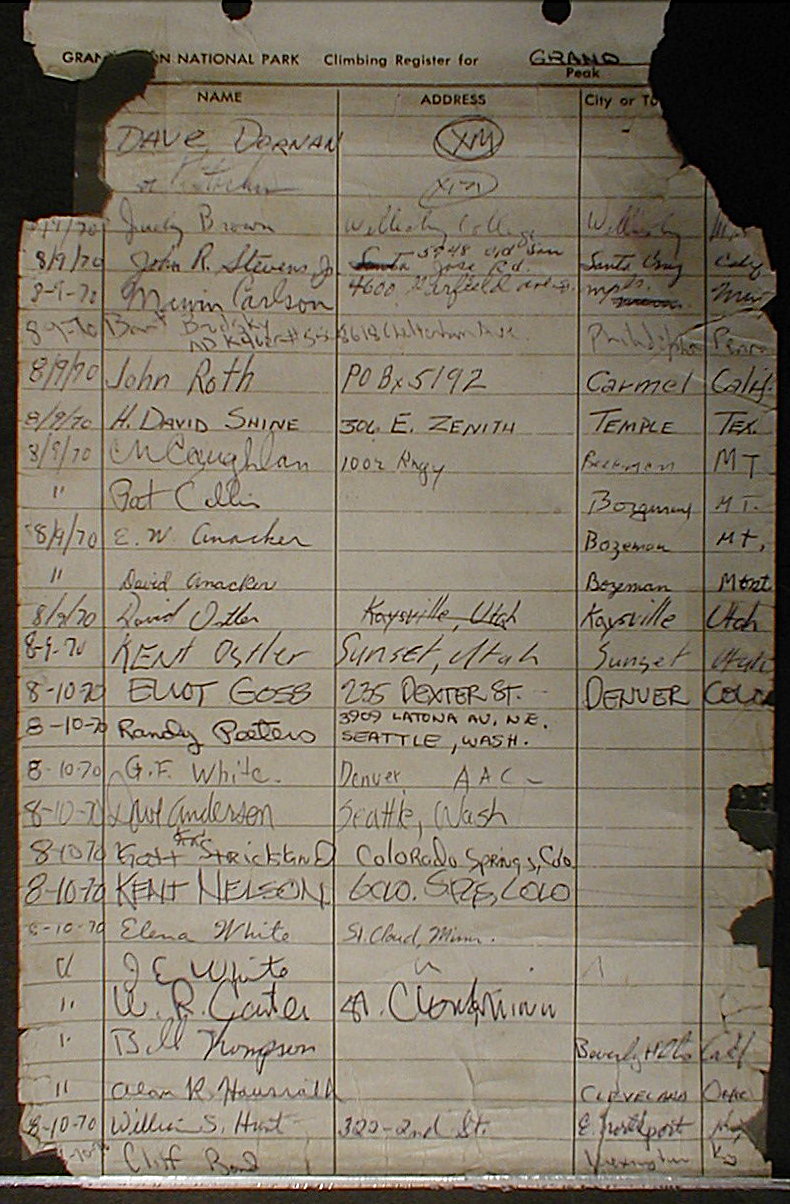 GRAND NATIONAL PARK Climbing Register for GRAND
Peak
NAME ADDRESS City or
DAVE DORNAN XM
XM
/70 Judy Brown College
8/9/70 John R. Stevens Jr. 5948 old San Jose Rd. Santa Cruz Calif
8-9-70 Carlson 4600 Garfield mpls.
8-9-70 8618 Cheltenham Ave. Philadelphia Penn
8/9/70 John Roth PO Bx 5192 Carmel Calif.
8/9/70 H. DAVID SHINE 306 E. ZENITH TEMPLE TEX.
8/9/70 McCaughlan 1002 MT
" Pat Collis Bozeman MT.
8/9/70 E. W. Anacker Bozeman Mt.
" David Anacker Bozeman Mont
8/9/70 David Ostler Kaysville, Utah Kaysville Utah
8-9-70 KENT Ostler Sunset, Utah Sunset Utah
8-10-70 ELIOT GOSS 235 DEXTER ST. DENVER COLO
8-10-70 Randy Peeters 3909 LATONA AV. N.E. SEATTLE, WASH.
8-10-70 G.F. White. Denver AAC
8-10-70 Dave Anderson Seattle, Wash
8-10-70 Scott STRICKLAND Colorado Springs, Colo
8-10-70 KENT NELSON COLO. SPGS, COLO
8-10-70 Elena White St. Cloud, Minn.
" J E White "
" W. R. Carter St. Cloud, Minn
" Bill Thompson Beverly Hills Calif
" Alan R. CLEVELAND OHIO
8-10-70 William S. Hunt 320-2nd St. E. Northport
Cliff Bond Lexington Ky